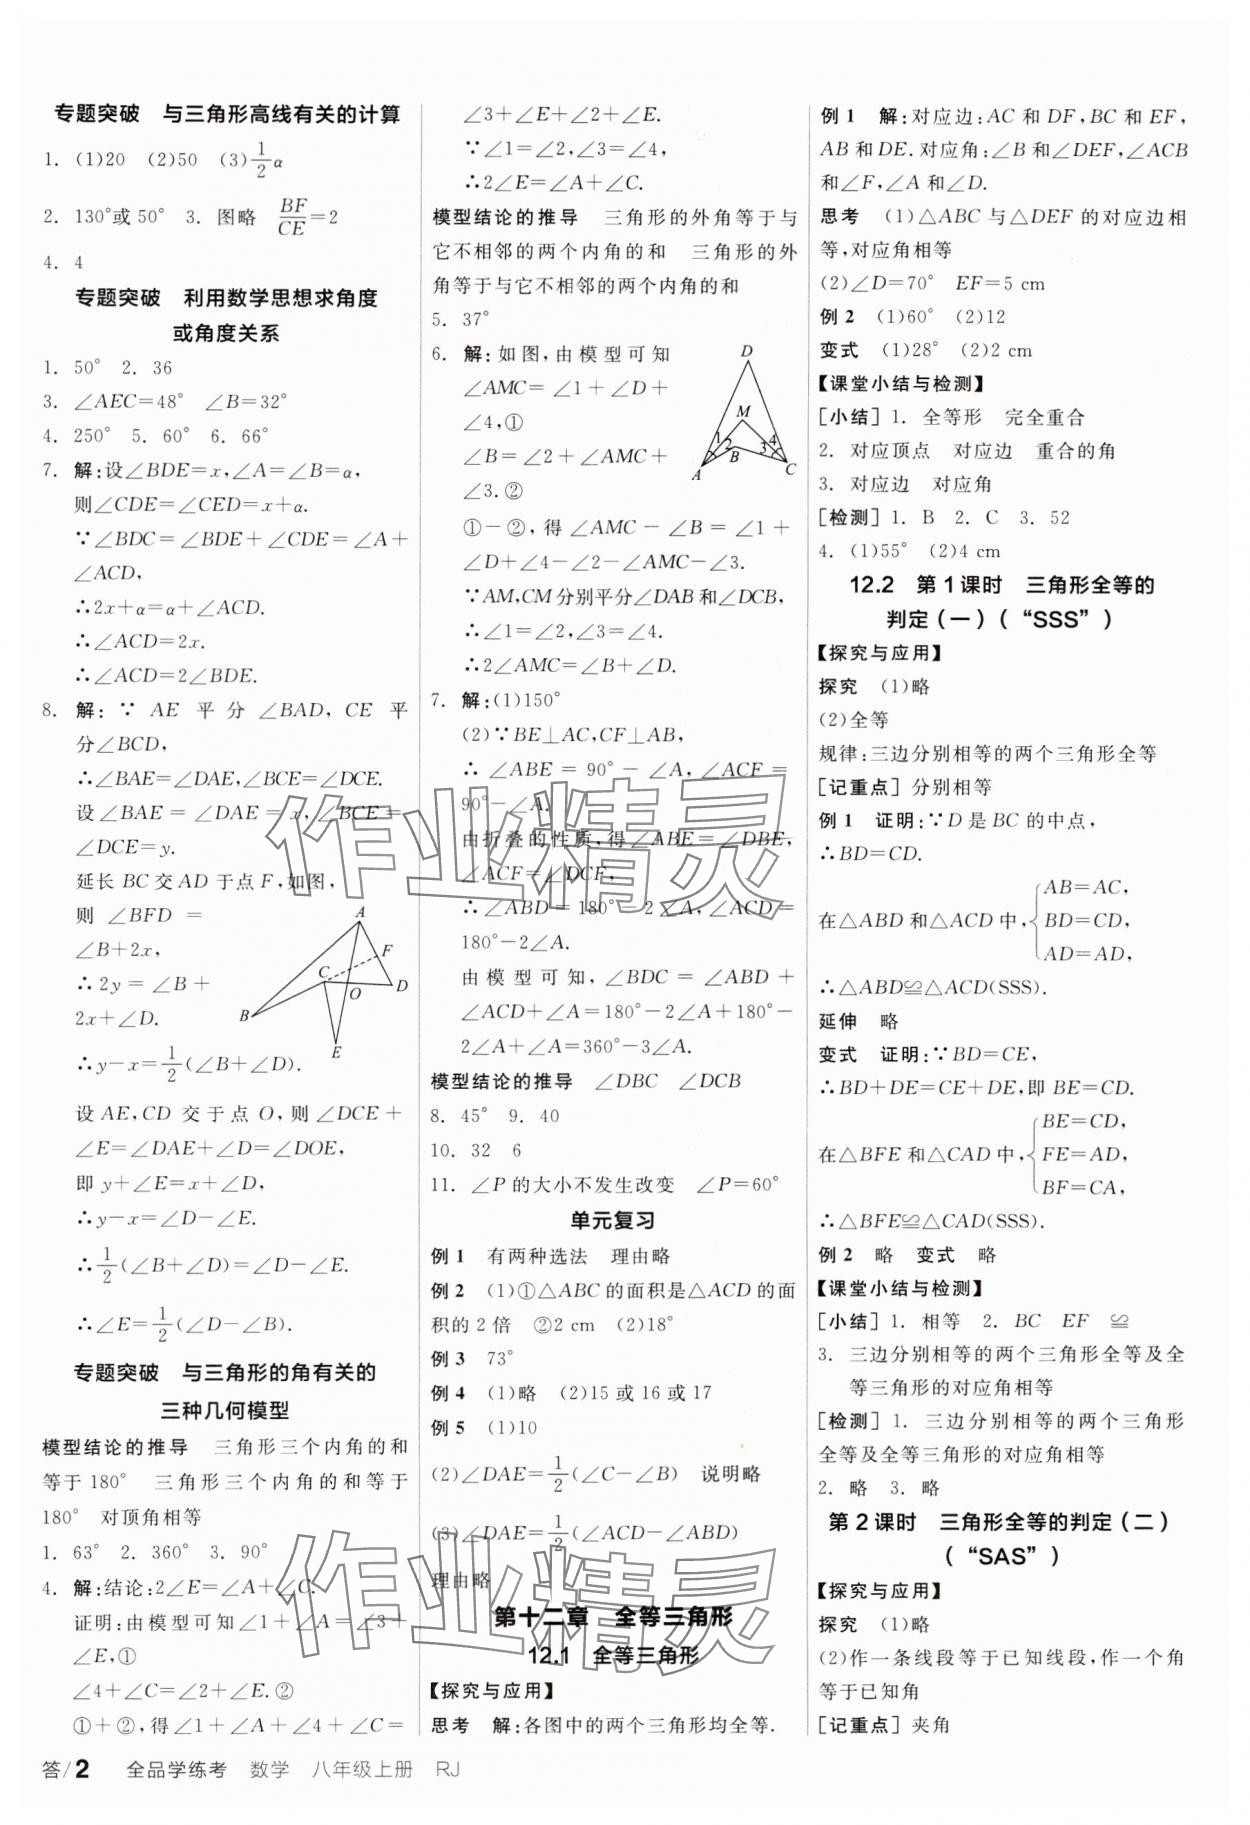 专题突破　与三角形高线有关的计算
1. (1)20　(2)50　(3)$\frac{1}{2}$α
2. 130°或50°　3. 图略　$\frac{BF}{CE}$=2
4. 4
专题突破　利用数学思想求角度
或角度关系
1. 50°　2. 36
3. ∠AEC=48°　∠B=32°
4. 250°　5. 60°　6. 66°
7. 解:设∠BDE=x,∠A=∠B=α,
则∠CDE=∠CED=x+α.
∵∠BDC=∠BDE+∠CDE=∠A+
∠ACD,
∴2x+α=α+∠ACD.
∴∠ACD=2x.
∴∠ACD=2∠BDE.
8. 解:∵ AE 平分∠BAD, CE 平
分∠BCD,
∴∠BAE=∠DAE,∠BCE=∠DCE.
设∠BAE=∠DAE=x,∠BCE=
∠DCE=y.
延长BC交AD于点F,如图,
则∠BFD=
∠B+2x,
∴2y=∠B+
2x+∠D.
∴y-x=$\frac{1}{2}$(∠B+∠D).
A
F
C
O
D
B
E
设AE,CD交于点O,则∠DCE+
∠E=∠DAE+∠D=∠DOE,
即y+∠E=x+∠D,
∴y-x=∠D-∠E.
∴$\frac{1}{2}$(∠B+∠D)=∠D-∠E.
∴∠E=$\frac{1}{2}$(∠D-∠B).
专题突破　与三角形的角有关的
三种几何模型
模型结论的推导　三角形三个内角的和
等于180°　三角形三个内角的和等于
180°　对顶角相等
1. 63°　2. 360°　3. 90°
4. 解:结论:2∠E=∠A+∠C.
证明:由模型可知∠1+∠A=∠3+
∠E,①
∠4+∠C=∠2+∠E.②
①+②,得∠1+∠A+∠4+∠C=
∠3+∠E+∠2+∠E.
∵∠1=∠2,∠3=∠4,
∴2∠E=∠A+∠C.
模型结论的推导　三角形的外角等于与
它不相邻的两个内角的和　三角形的外
角等于与它不相邻的两个内角的和
5. 37°
6. 解:如图,由模型可知
∠AMC=∠1+∠D+
∠4,①
∠B=∠2+∠AMC+
∠3.②
D
M
1 2 3 4
A B C
①-②,得∠AMC-∠B=∠1+
∠D+∠4-∠2-∠AMC-∠3.
∵AM,CM分别平分∠DAB和∠DCB,
∴∠1=∠2,∠3=∠4.
∴2∠AMC=∠B+∠D.
7. 解:(1)150°
(2)∵BE⊥AC,CF⊥AB,
∴∠ABE=90°-∠A,∠ACF=
90°-∠A.
由折叠的性质,得∠ABE=∠DBE,
∠ACF=∠DCF,
∴∠ABD=180°-2∠A,∠ACD=
180°-2∠A.
由模型可知,∠BDC=∠ABD+
∠ACD+∠A=180°-2∠A+180°-
2∠A+∠A=360°-3∠A.
模型结论的推导　∠DBC　∠DCB
8. 45°　9. 40
10. 32　6
11. ∠P的大小不发生改变　∠P=60°
单元复习
例1　有两种选法　理由略
例2　(1)①△ABC的面积是△ACD的面
积的2倍　②2 cm　(2)18°
例3　73°
例4　(1)略　(2)15或16或17
例5　(1)10
(2)∠DAE=$\frac{1}{2}$(∠C-∠B)　说明略
(3)∠DAE=$\frac{1}{2}$(∠ACD-∠ABD)
理由略
第十二章　全等三角形
12.1　全等三角形
【探究与应用】
思考　解:各图中的两个三角形均全等.
例1　解:对应边:AC和DF,BC和EF,
AB和DE.对应角:∠B和∠DEF,∠ACB
和∠F,∠A和∠D.
思考　(1)△ABC与△DEF的对应边相
等,对应角相等
(2)∠D=70°　EF=5 cm
例2　(1)60°　(2)12
变式　(1)28°　(2)2 cm
【课堂小结与检测】
[小结] 1. 全等形　完全重合
2. 对应顶点　对应边　重合的角
3. 对应边　对应角
[检测] 1. B　2. C　3. 52
4. (1)55°　(2)4 cm
12.2　第1课时　三角形全等的
判定(一)(“SSS”)
【探究与应用】
探究　(1)略
(2)全等
规律:三边分别相等的两个三角形全等
[记重点] 分别相等
例1　证明:∵D是BC的中点,
∴BD=CD.
在△ABD和△ACD中,{AB=AC,
BD=CD,
AD=AD,
∴△ABD≌△ACD(SSS).
延伸　略
变式　证明:∵BD=CE,
∴BD+DE=CE+DE,即BE=CD.
在△BFE和△CAD中,{BE=CD,
FE=AD,
BF=CA,
∴△BFE≌△CAD(SSS).
例2　略　变式　略
【课堂小结与检测】
[小结] 1. 相等　2. BC　EF　≌
3. 三边分别相等的两个三角形全等及全
等三角形的对应角相等
[检测] 1. 三边分别相等的两个三角形
全等及全等三角形的对应角相等
2. 略　3. 略
第2课时　三角形全等的判定(二)
(“SAS”)
【探究与应用】
探究　(1)略
(2)作一条线段等于已知线段,作一个角
等于已知角
[记重点] 夹角
作业精灵
作业精灵
答/2　全品学练考　数学　八年级上册　RJ